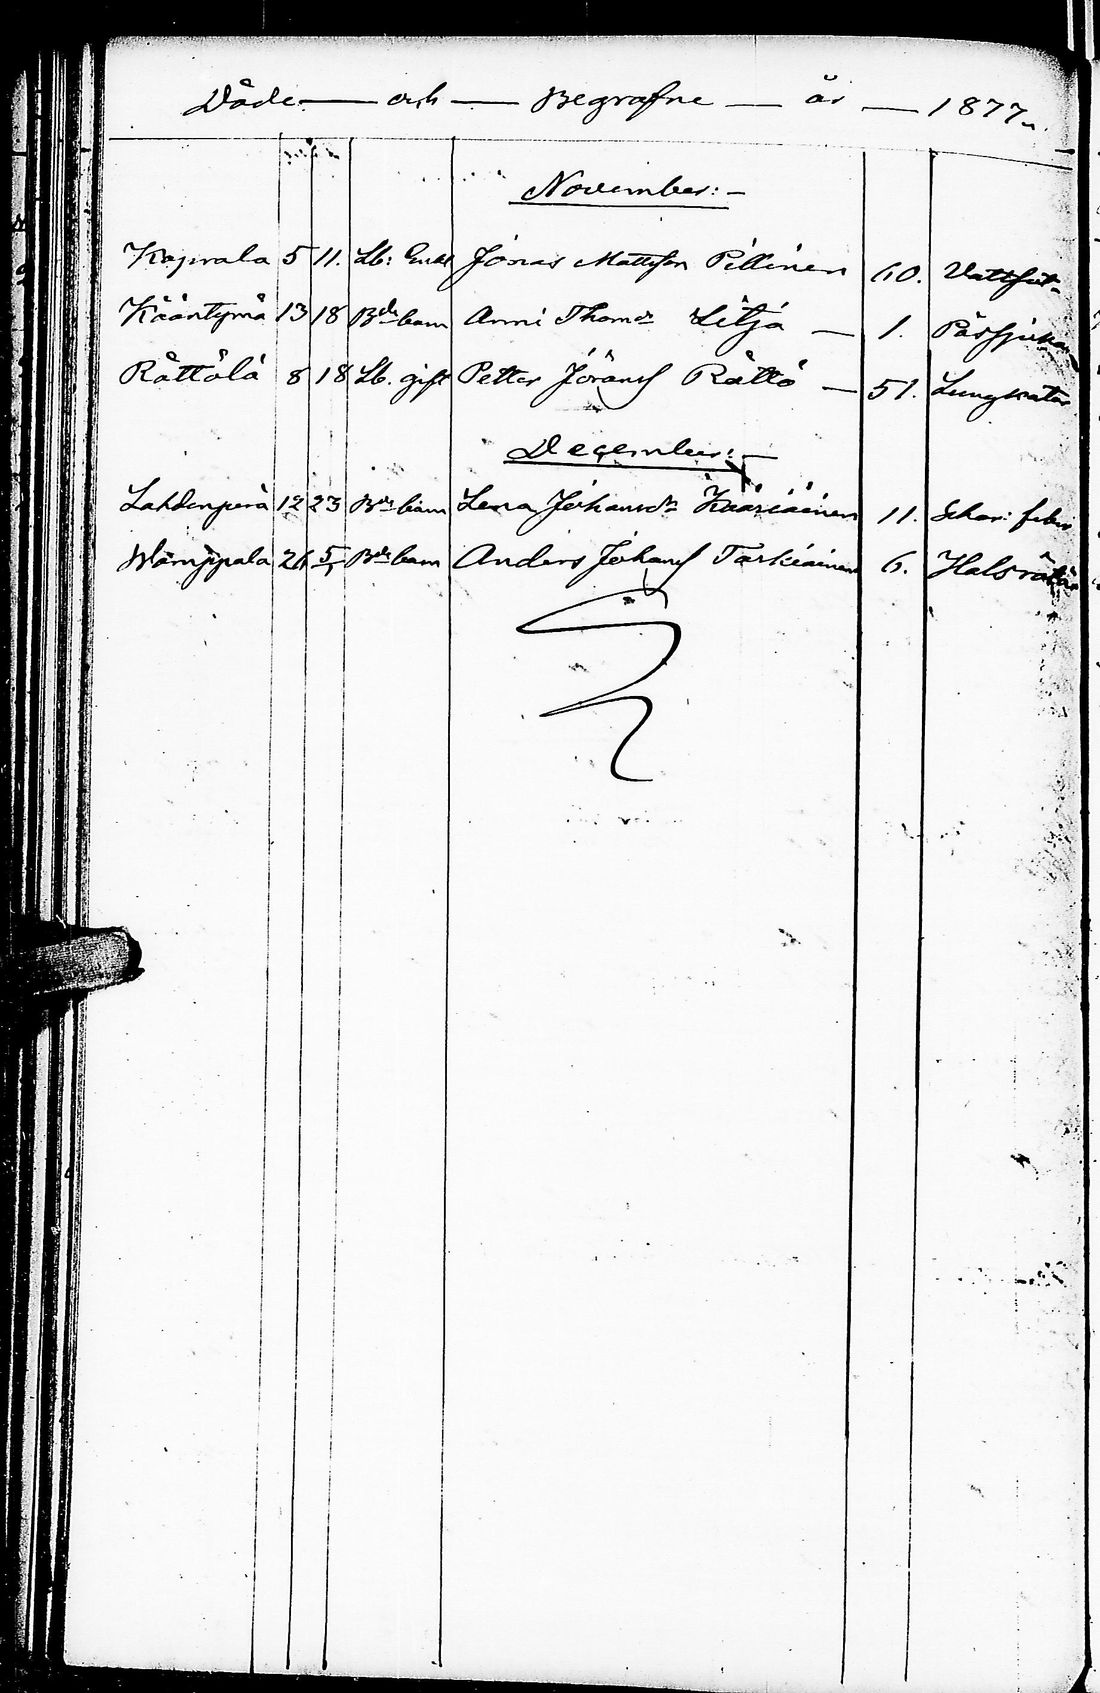 Döde — och — Begrafne — år — 1877.
November: –
Kaprala 5 11. Lb: Enkl Jönas Mattsson Pillinen 60. Vattsot
Kääntymä 13 18 Bde barn Anni Thomdr Litja — 1. Påssjukan
Rättölä 8 18 Lb. gift Petter Göranss Rättö — 51. Lungkatar
December: –
Lahdenperä 12 23 Bde barn Lena Johansdr Kääriäinen 11. Schar: feber
Bde barn Anders Johans Tarkiainen 6. Halsröta